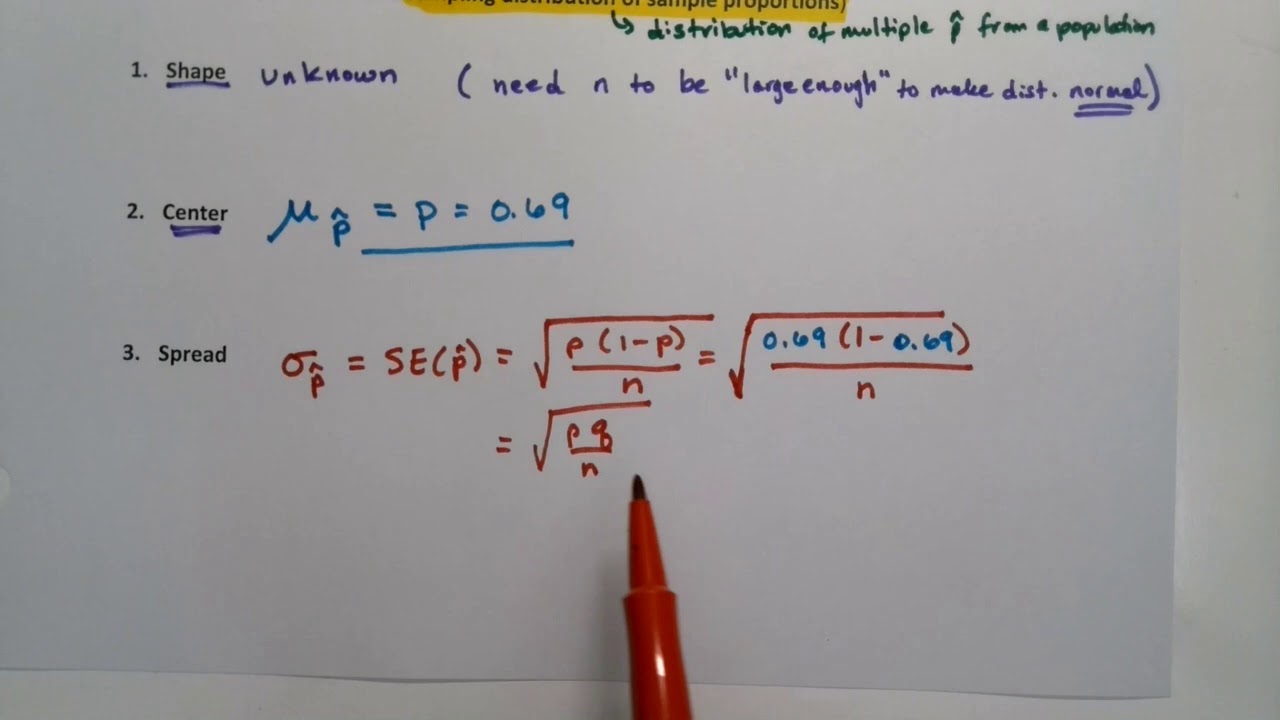 distribution of sample proportions)
↳ distribution of multiple p̂ from a population
1. Shape unknown (need n to be "large enough" to make dist. normal)
2. Center μp̂ = p = 0.69
3. Spread σp̂ = SE(p̂) = √(p(1-p)/n) = √(0.69(1-0.69)/n)
= √(pq/n)